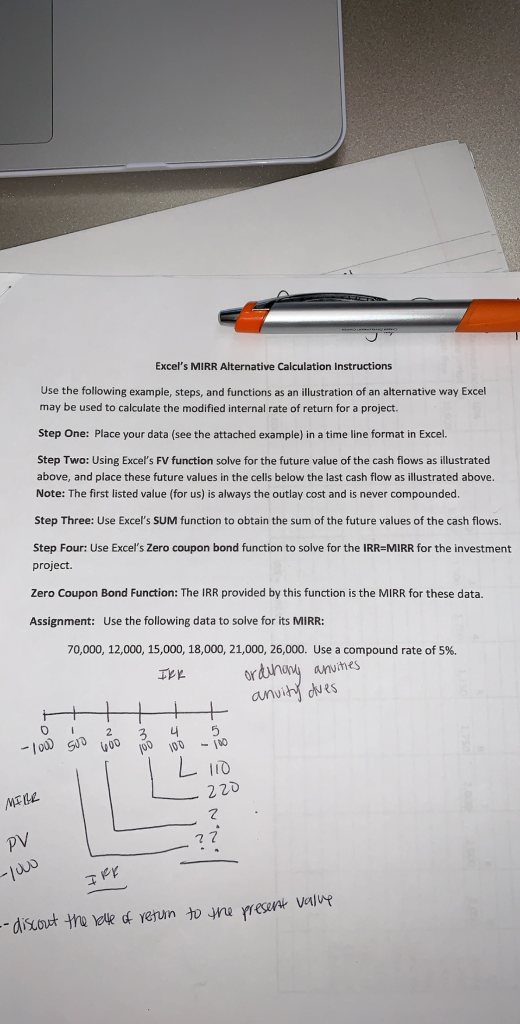 Excel's MIRR Alternative Calculation Instructions
Use the following example, steps, and functions as an illustration of an alternative way Excel
may be used to calculate the modified internal rate of return for a project.
Step One: Place your data (see the attached example) in a time line format in Excel.
Step Two: Using Excel's FV function solve for the future value of the cash flows as illustrated
above, and place these future values in the cells below the last cash flow as illustrated above.
Note: The first listed value (for us) is always the outlay cost and is never compounded.
Step Three: Use Excel's SUM function to obtain the sum of the future values of the cash flows.
Step Four: Use Excel's Zero coupon bond function to solve for the IRR=MIRR for the investment
project.
Zero Coupon Bond Function: The IRR provided by this function is the MIRR for these data.
Assignment: Use the following data to solve for its MIRR:
70,000, 12,000, 15,000, 18,000, 21,000, 26,000. Use a compound rate of 5%.
IRR
anuity dues
0 1 2 3 4 5
-1000 500 600 100 100 - 100
110
220
?
??
MIRR
PV
-1000
IRR
-- discout the of return to the present value